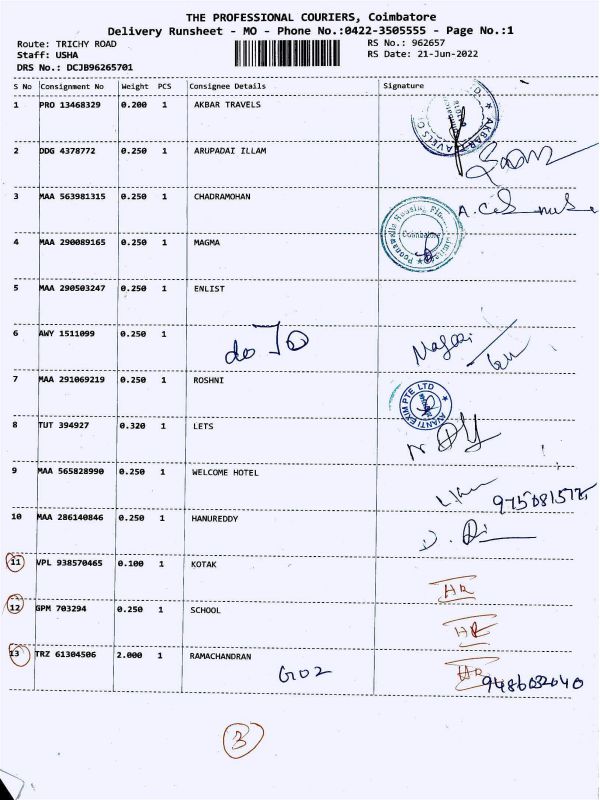 THE PROFESSIONAL COURIERS, Coimbatore
Delivery Runsheet - MO - Phone No.:0422-3505555 - Page No.:1
Route: TRICHY ROAD RS No.: 962657
Staff: USHA RS Date: 21-Jun-2022
DRS No.: DCJB96265701
S No Consignment No Weight PCS Consignee Details Signature
1 PRO 13468329 0.200 1 AKBAR TRAVELS
AKBAR TRAVELS
2 DDG 4378772 0.250 1 ARUPADAI ILLAM
3 MAA 563981315 0.250 1 CHADRAMOHAN
Poonawalla Housing Fin
Coimbatore
4 MAA 290089165 0.250 1 MAGMA
5 MAA 290503247 0.250 1 ENLIST
6 AWY 1511099 0.250 1
7 MAA 291069219 0.250 1 ROSHNI
AVANTI EXIM PTE LTD
8 TUT 394927 0.320 1 LETS
9 MAA 565828990 0.250 1 WELCOME HOTEL
10 MAA 286140846 0.250 1 HANUREDDY
11 VPL 938570465 0.100 1 KOTAK
12 GPM 703294 0.250 1 SCHOOL
13 TRZ 61304506 2.000 1 RAMACHANDRAN
9486032040
3